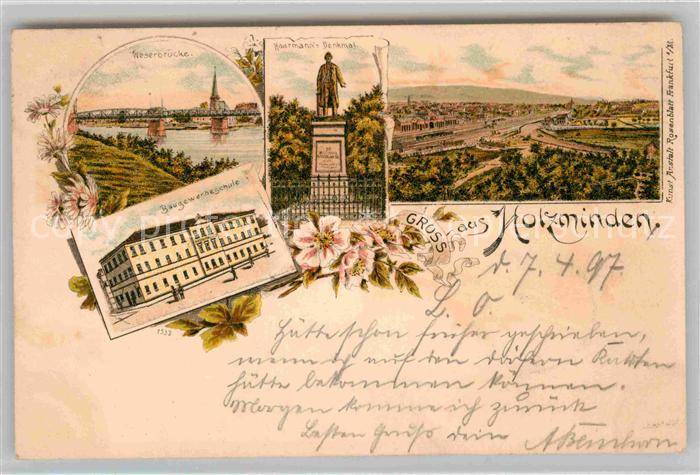 Weserbrücke.
Haarmann's Denkmal
Baugewerkeschule
1532
GRUSS aus Holzminden,
Kunst Anstalt Rosenblatt Frankfurt a/M.
d. 7. 4. 97
L. O.
Hätte schon früher geschrieben,
wenn ich auf den Karten
hätte bekommen können.
Morgen komme ich zurück
Besten Gruss dein